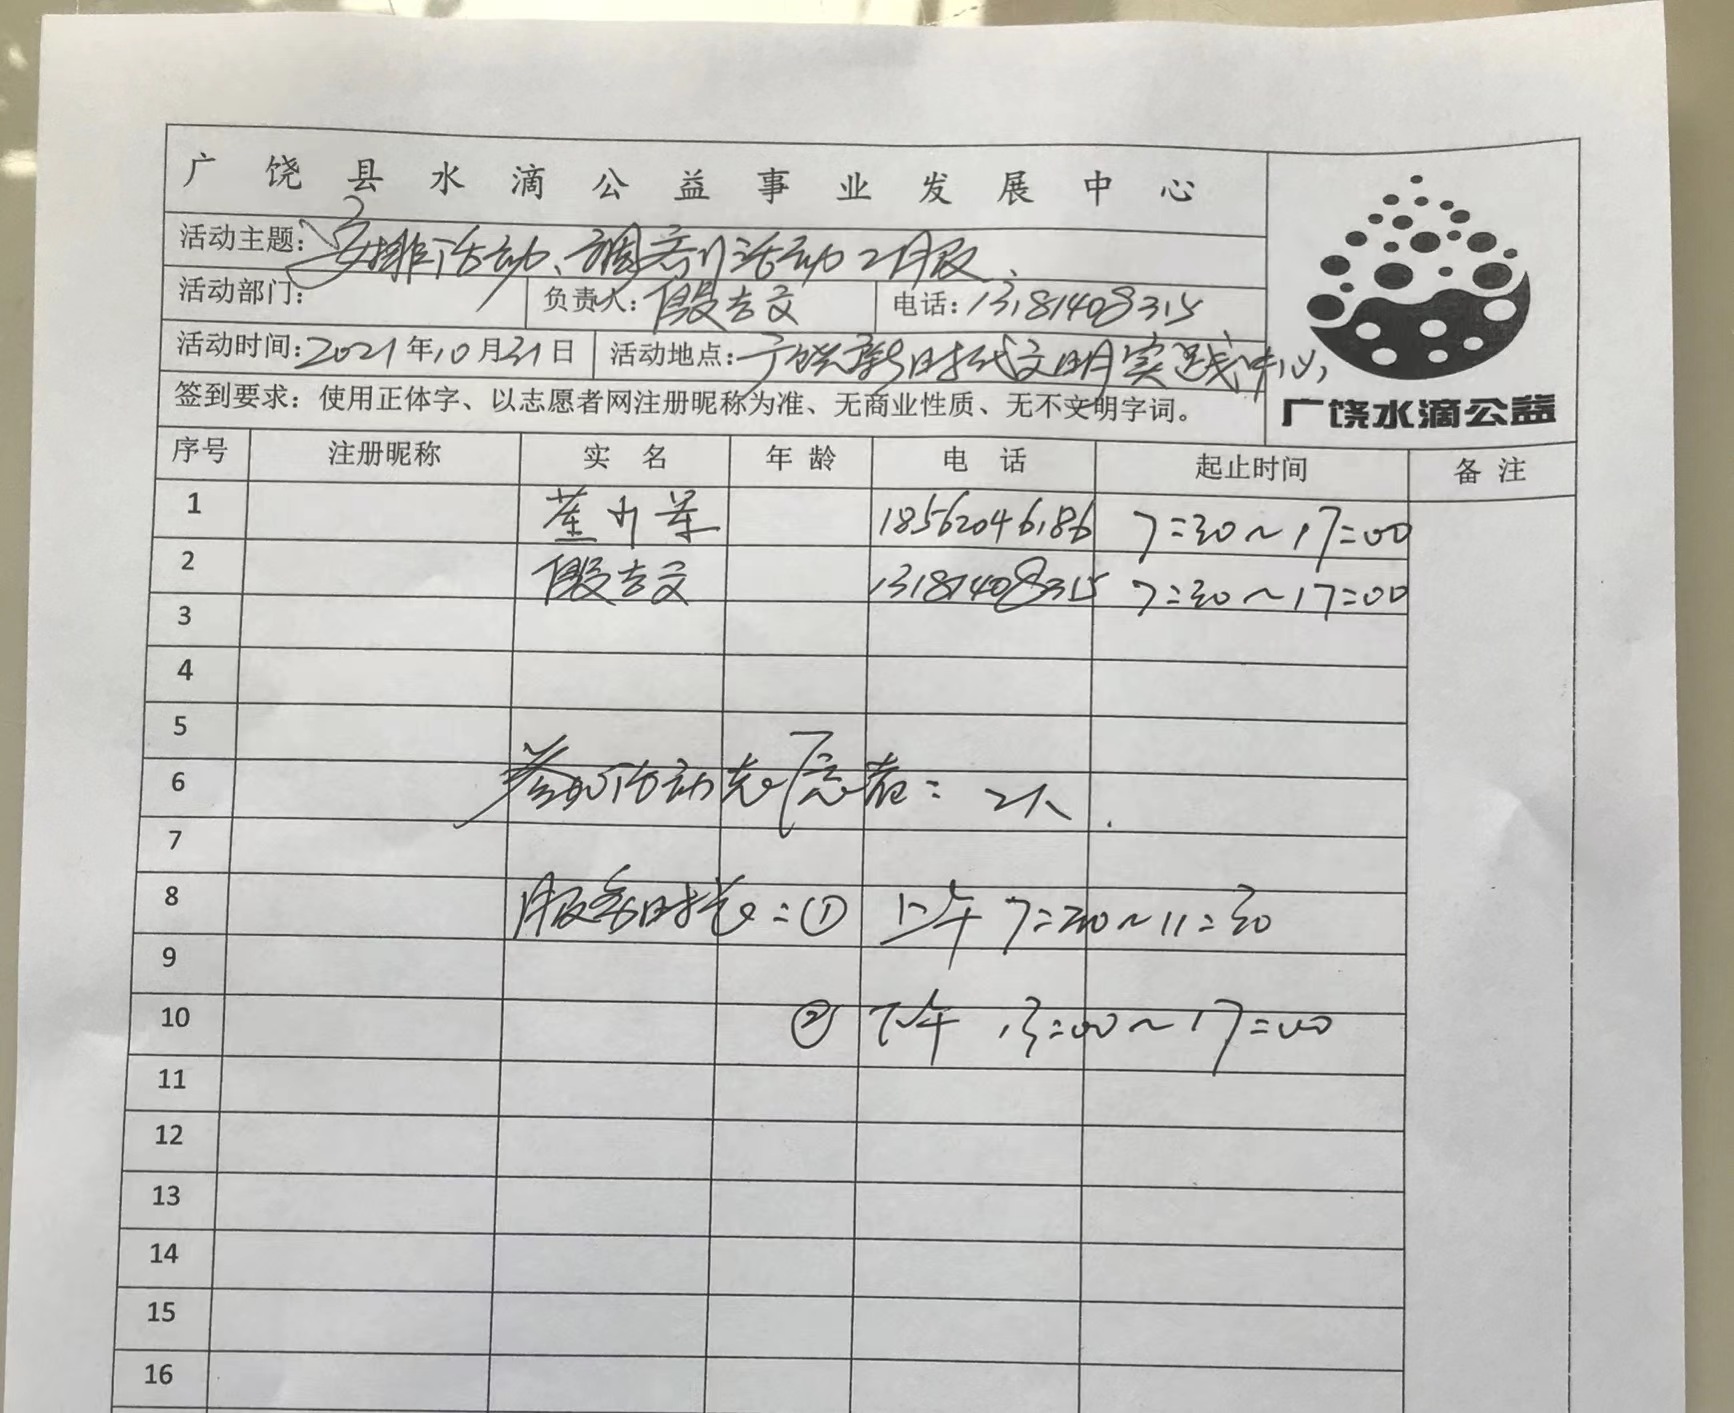 广饶县水滴公益事业发展中心
活动主题：安排活动、调剂活动马服
活动部门： 负责人：殷吉文 电话：13181408315
活动时间：2021年10月31日 活动地点：广饶新时代文明实践中心，
签到要求：使用正体字、以志愿者网注册昵称为准、无商业性质、无不文明字词。
广饶水滴公益
序号 注册昵称 实名 年龄 电话 起止时间 备注
1 18562046186 7:30~17:00
2 殷吉文 13181408315 7:30~17:00
3
4
5
6 参加活动志愿者：2人.
7
8 服务时长：① 上午 7:30~11:30
9
10 ② 下午 13:00~17:00
11
12
13
14
15
16